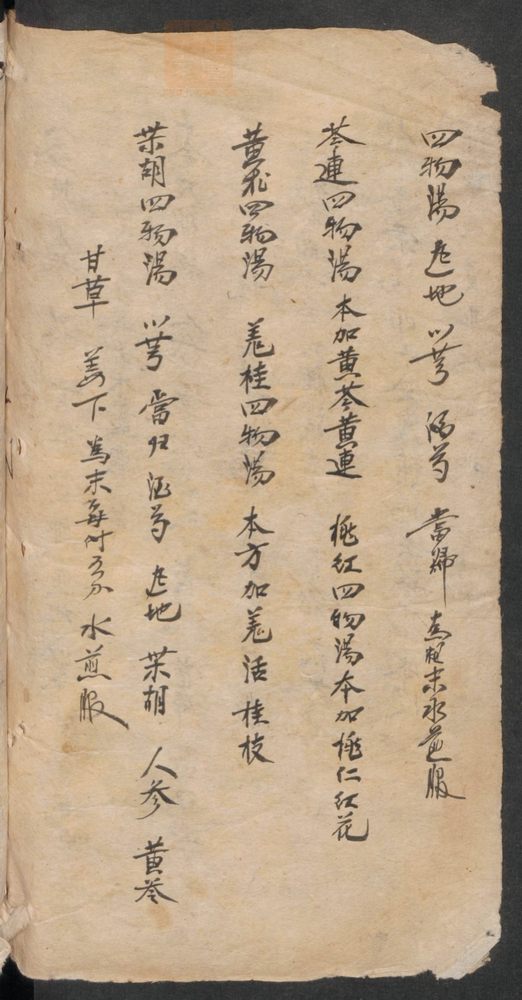 四物湯 生地 川芎 酒芍 當歸 為粗末水煎服
芩連四物湯 本加黄芩黄連 桃紅四物湯 本加桃仁红花
四物湯 羌桂四物湯 本方加羌活桂枝
柴胡四物湯 川芎 當归 酒芍 生地 柴胡 人参 黄芩
甘草 為末每付 水煎服